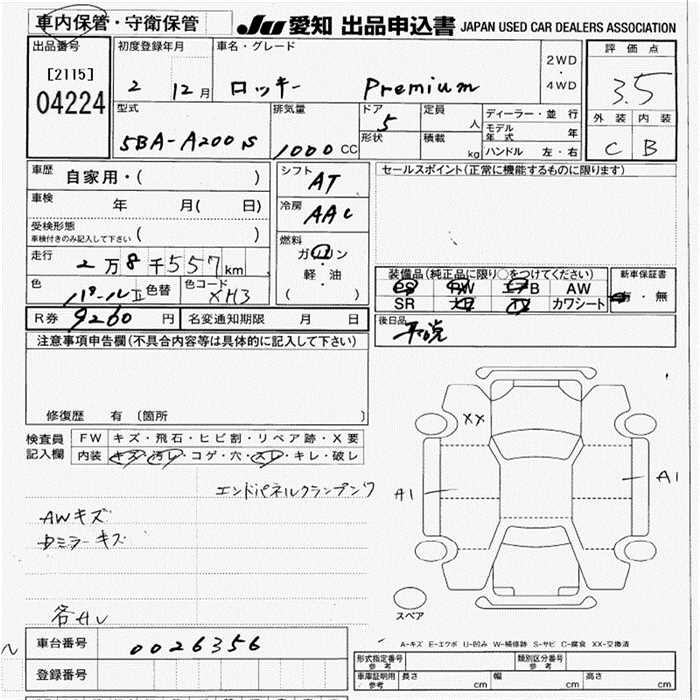 車内保管・守衛保管
JU 愛知 出品申込書 JAPAN USED CAR DEALERS ASSOCIATION
出品番号
[2115]
04224
初度登録年月
2 12 月
車名・グレード
ロッキー Premium
2WD
・
4WD
評価点
3.5
外装 内装
C B
型式
5BA-A200S
排気量
1000 CC
ドア
5
形状
定員
人
積載
kg
ディーラー・並行
モデル年式 年
ハンドル 左・右
車歴 自家用・( )
車検 年 月( 日)
受検形態
車検付きのみ記入して下さい ( )
走行
2万8千557km
色
パール II 色替
色コード
XH3
シフト
AT
冷房
AAC
燃料
ガソリン
・
軽・油
( )
セールスポイント(正常に機能するものに限ります)
装備品(純正品に限り○をつけてください)
PS PW エアB AW
SR ナビ TV カワシート
新車保証書
有・無
R券 9260 円
名変通知期限 月 日
後日品
取説
注意事項申告欄(不具合内容等は具体的に記入して下さい)
修復歴 有 〔箇所 〕
検査員記入欄
FW キズ・飛石・ヒビ割・リペア跡・X要
内装 キズ・汚レ・コゲ・穴・スレ・キレ・破レ
エンドパネルクランプシワ
AWキズ
ドミラーキズ
各AU
XX
A1
A1
スペア
A-キズ E-エクボ U-凹み W-補修跡 S-サビ C-腐食 XX-交換済
車台番号 0026356
登録番号
型式指定番号
参考
類別区分番号
参考
車庫証明用
参考
長さ cm 幅 cm 高さ cm